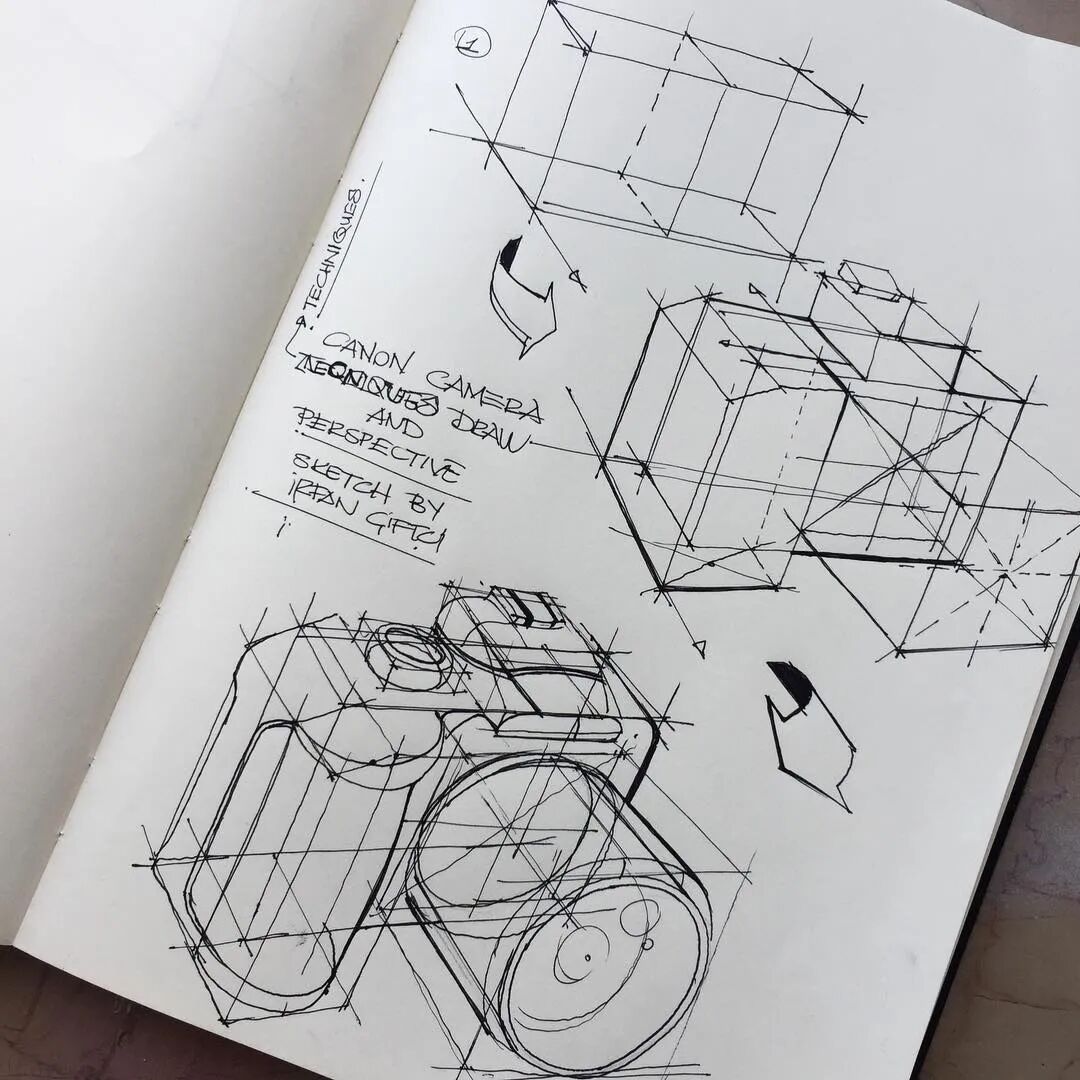 1
TECHNIQUES.
CANON CAMERA
TECQNIQUES DRAW
AND
PERSPECTIVE
SKETCH BY
İRFAN ÇİFTÇİ